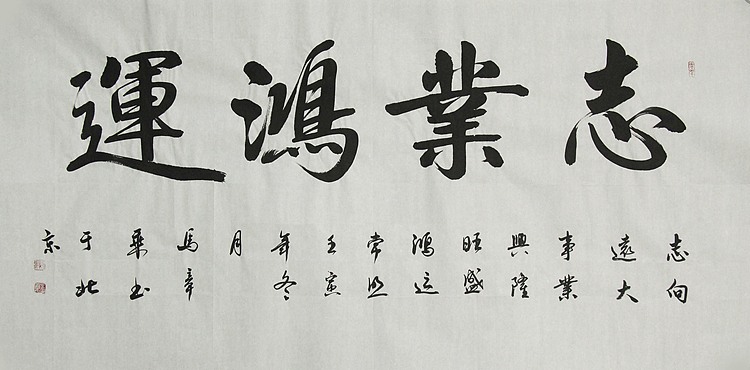 志業鴻運
志向
遠大
事業
興隆
旺盛
鴻运
常照
壬寅
年冬
月
馬章
乘书
于北
京